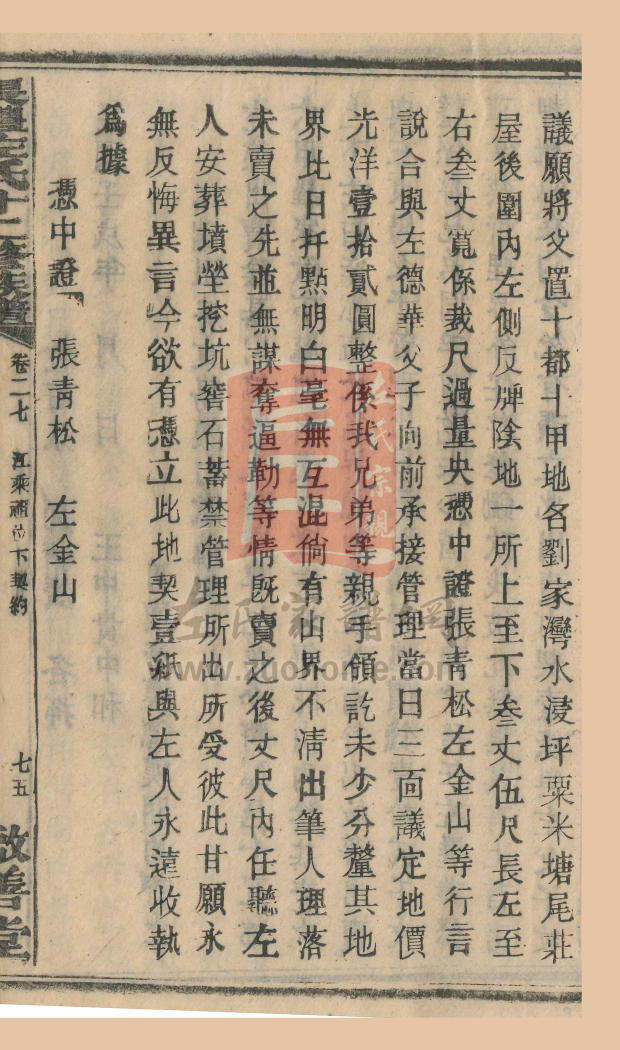 議願將父置十都十甲地名劉家灣水淩坪粟米塘尾莊
屋後圍內左側反牌陰地一所上至下叁丈伍尺長左至
右叁丈寬係裁尺過量央憑中證張青松左金山等行言
說合與左德華父子向前承接管理當日三面議定地價
光洋壹拾貳圓整係我兄弟等親手領訖未少分釐其地
界比日扦點明白毫無互混倘有山界不清出筆人理落
未賣之先並無謀奪逼勒等情既賣之後丈尺內任聽左
人安葬墳塋挖坑窖石蓄禁管理所出所受彼此甘願永
無反悔異言今欲有憑立此地契壹紙與左人永遠收執
為據
憑中證 張青松 左金山
左氏十二修族譜 卷二七 江乘祠位下契約 七五 敬善堂
左氏宗親
左氏家譜網
www.zuohome.com